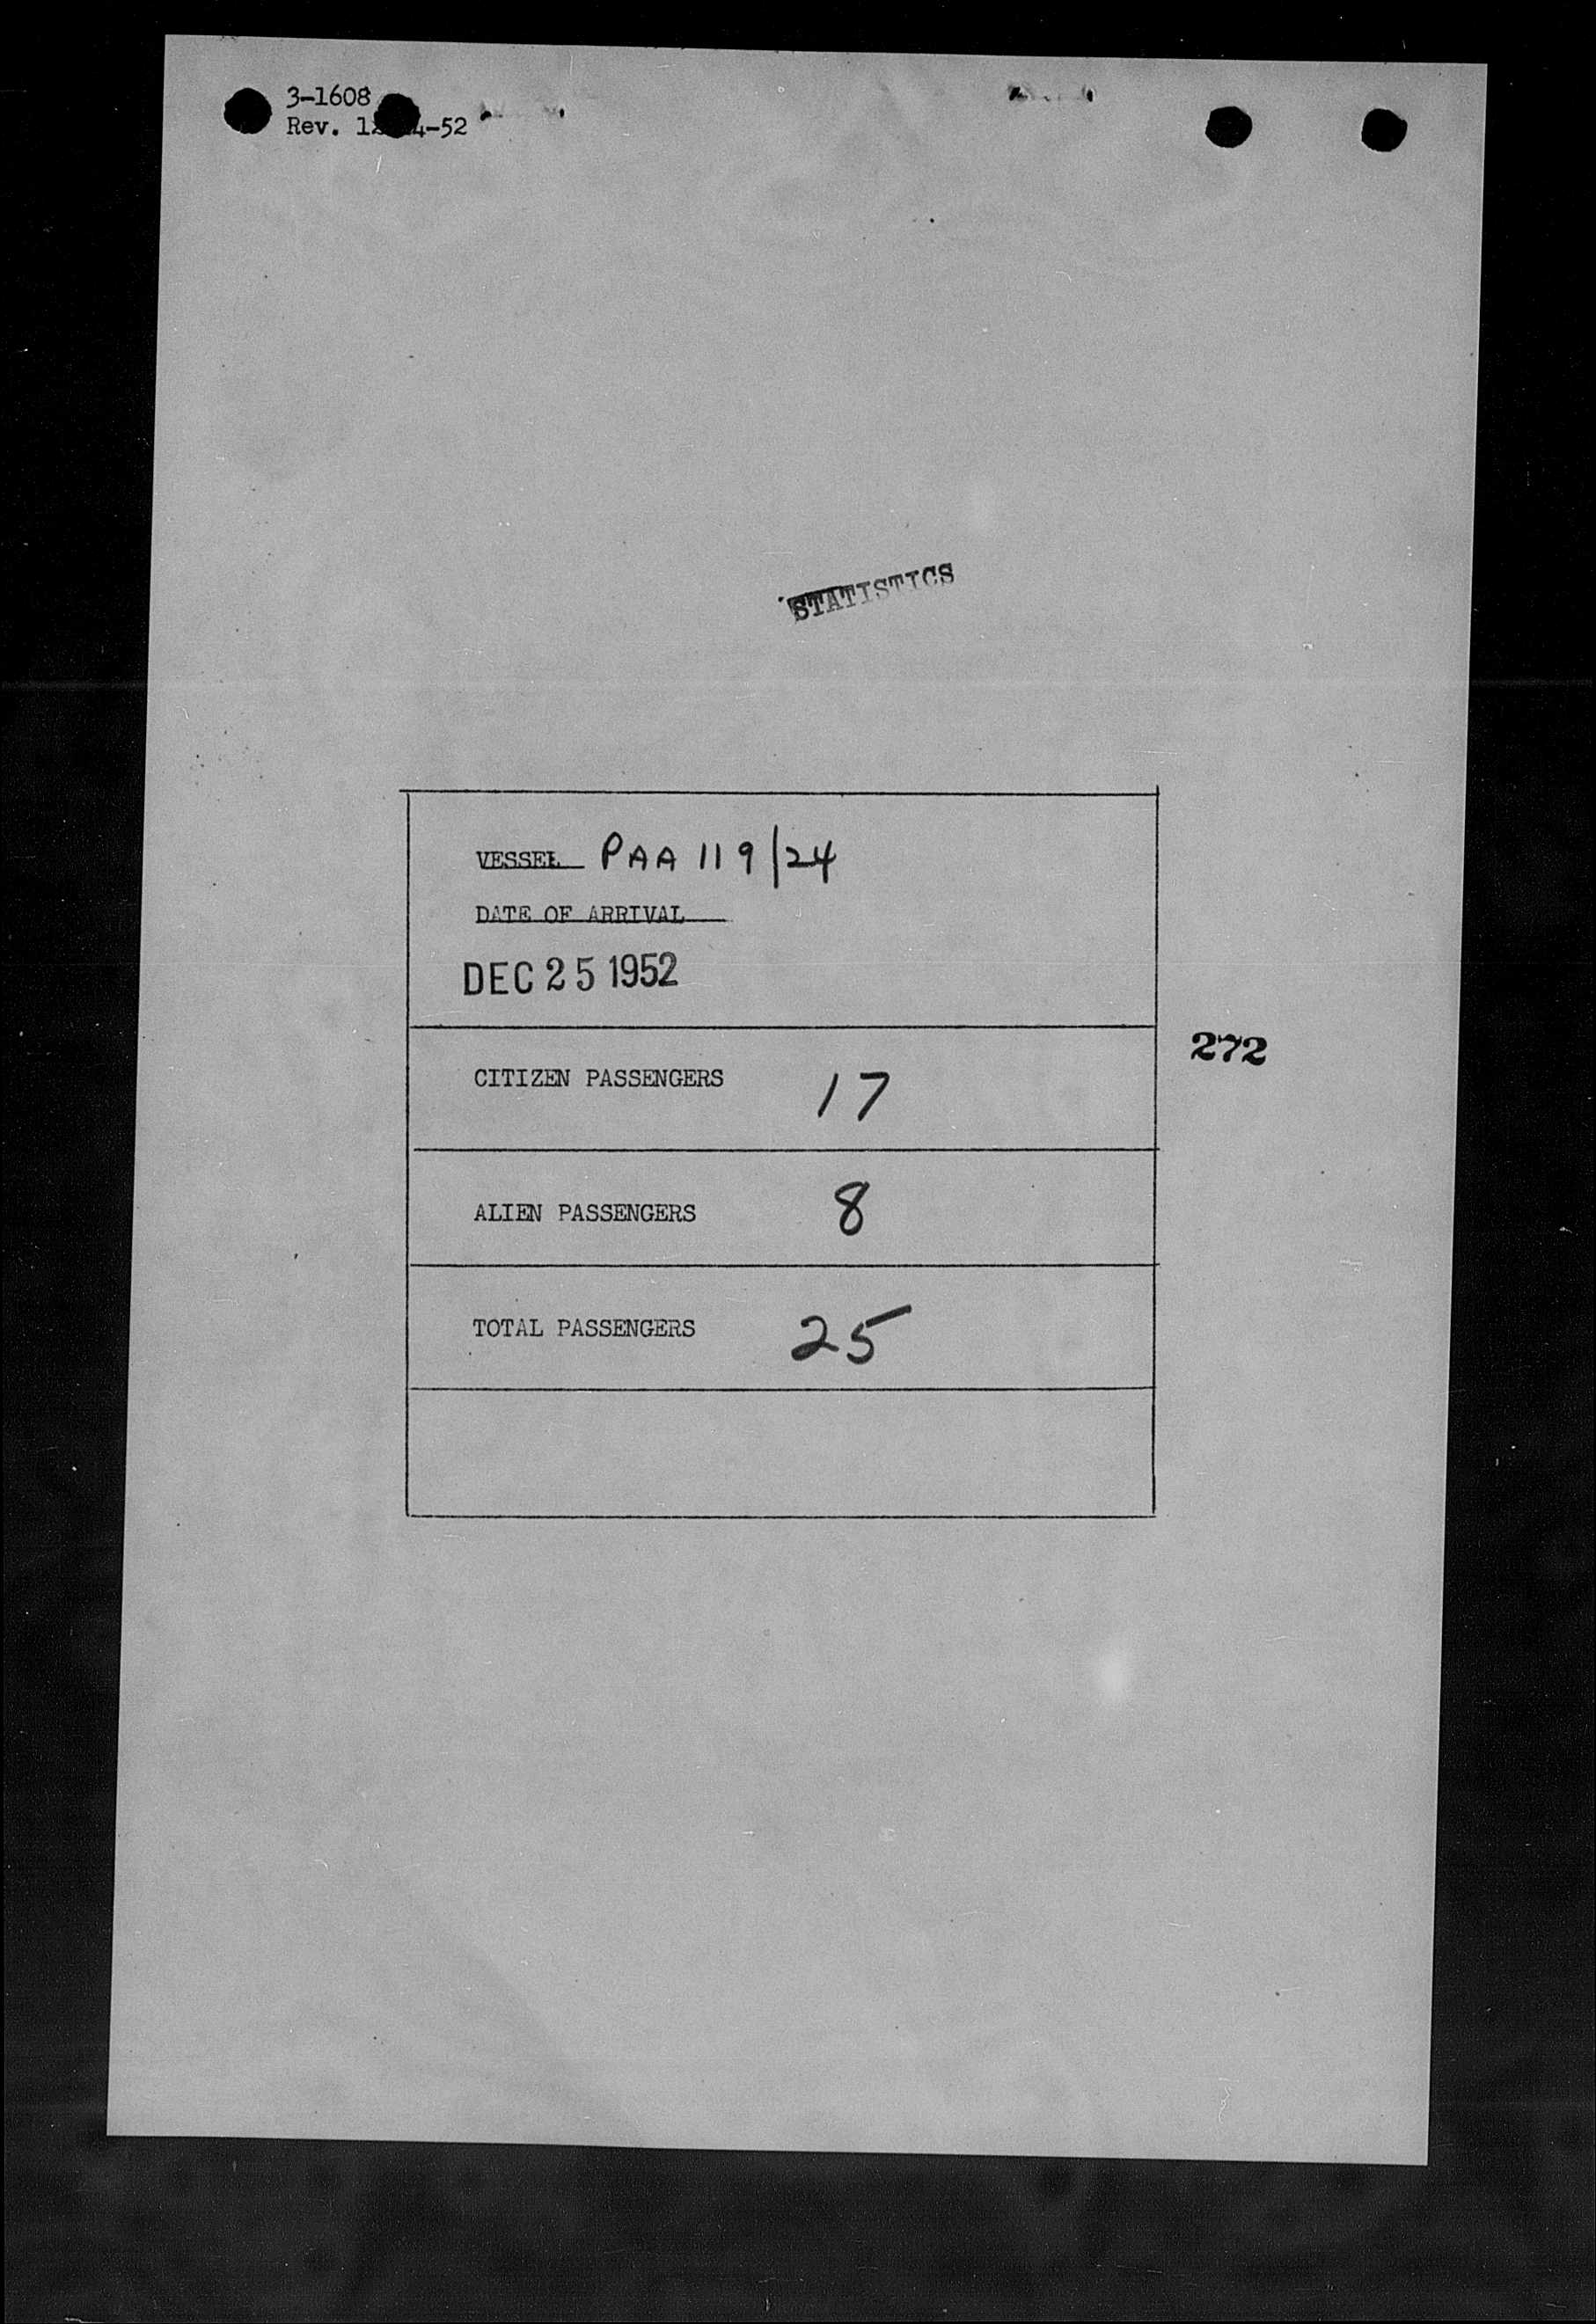 3-1608
Rev. 4-52
STATISTICS
VESSEL PAA 119/24
DATE OF ARRIVAL
DEC 25 1952
272
CITIZEN PASSENGERS 17
ALIEN PASSENGERS 8
TOTAL PASSENGERS 25